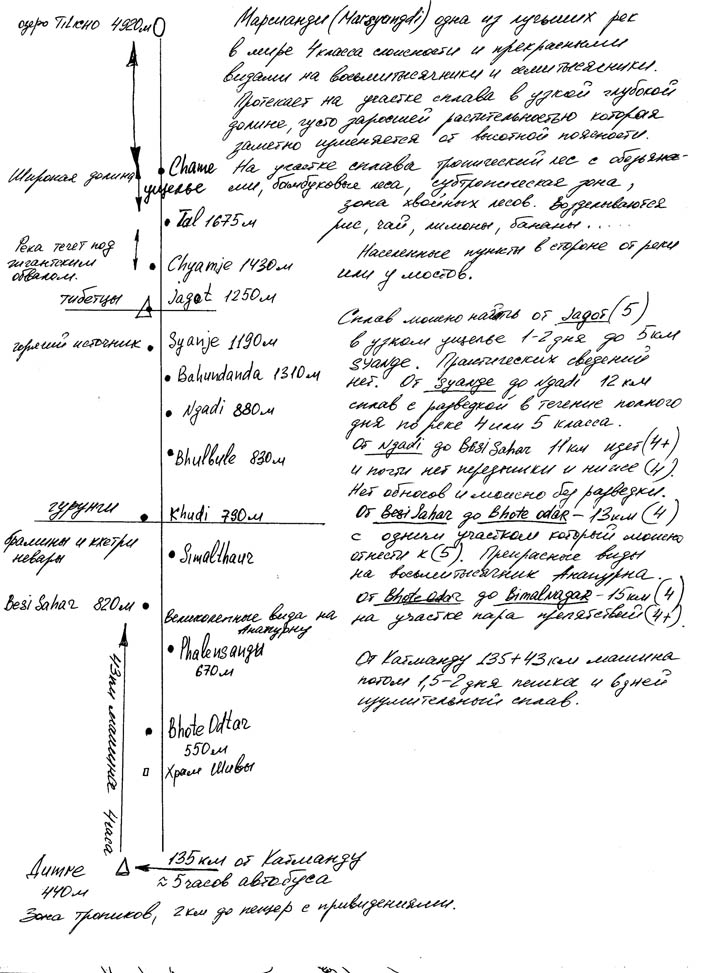 озеро TiLICHO 4920м
Марсианди (Marsyangdi) одна из лучших рек
в мире 4 класса сложности и прекрасными
видами на восьмитысячники и семитысячники.
Протекает на участке сплава в узкой глубокой
долине, густо заросшей растительностью которая
заметно изменяется от высотной поясности.
На участке сплава тропический лес с обезьяна-
ми, бамбуковые леса, субтропическая зона,
зона хвойных лесов. Возделываются
рис, чай, лимоны, бананы .....
Населенные пункты в стороне от реки
или у мостов.
Сплав можно начать от Jagot (5)
в узком ущелье 1-2 дня до 5 км
Syange. Практических сведений
нет. От Syange до Ngadi 12 км
сплав с разведкой в течение полного
дня по реке 4 или 5 класса.
От Ngadi до Besi Sahar 11 км идет (4+)
и почти нет передышки и ниже (4).
Нет обносов и можно без разведки.
От Besi Sahar до Bhote odar - 13 км (4)
с одним участком который можно
отнести к (5). Прекрасные виды
на восьмитысячник Анапурна.
От Bhote odar до Bimalnagar - 15 км (4)
на участке пара препятствий (4+).
От Катманду 135+43 км машина
потом 1,5-2 дня пешка и 6 дней
изумительный сплав.
Широкая долина
Chame
ущелье
Tal 1675м
Река течет под
гигантским
обвалом.
Chyamje 1430м
тибетцы
Jagat 1250м
горячий источник
Syanje 1190м
Bahundanda 1310м
Ngadi 880м
Bhulbule 830м
гурунги
Khudi 790м
брамины и кхетри
невары
Simalthaur
Besi Sahar 820м
Великолепные вида на
Анапурну
Phalensangu
670м
43км машина 4 часа
Bhote Odtar
550м
Храм Шивы
Думре
440м
135 км от Катманду
≈ 5 часов автобуса
Зона тропиков, 2км до пещер с привидениями.